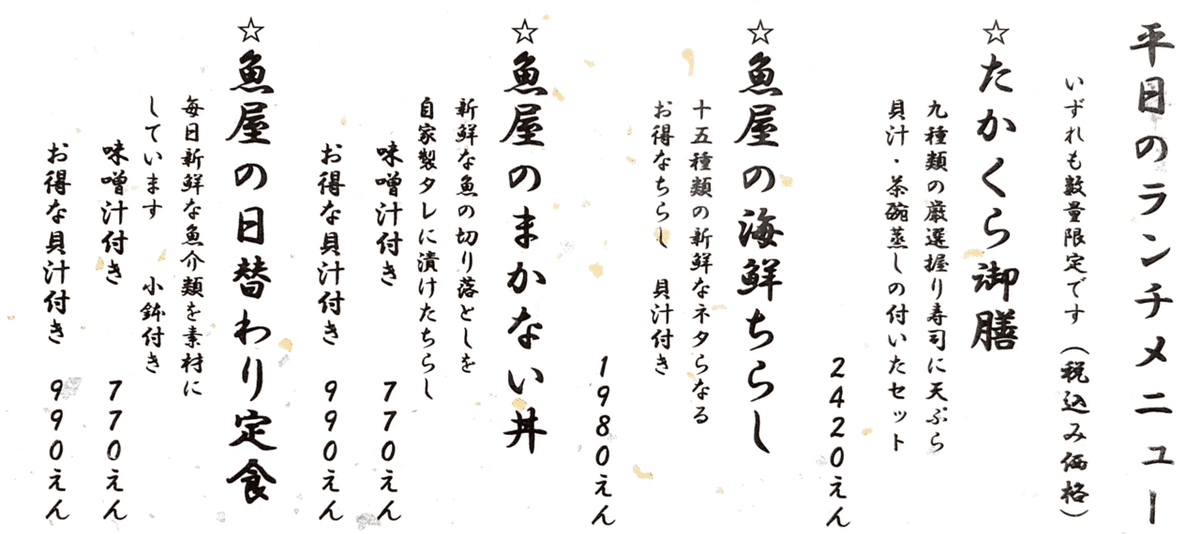 平日のランチメニュー
いずれも数量限定です（税込み価格）
☆たかくら御膳
九種類の厳選握り寿司に天ぷら
貝汁・茶碗蒸しの付いたセット
2420えん
☆魚屋の海鮮ちらし
十五種類の新鮮なネタらなる
お得なちらし　貝汁付き
1980えん
☆魚屋のまかない丼
新鮮な魚の切り落としを
自家製タレに漬けたちらし
味噌汁付き　770えん
お得な貝汁付き　990えん
☆魚屋の日替わり定食
毎日新鮮な魚介類を素材に
しています　小鉢付き
味噌汁付き　770えん
お得な貝汁付き　990えん